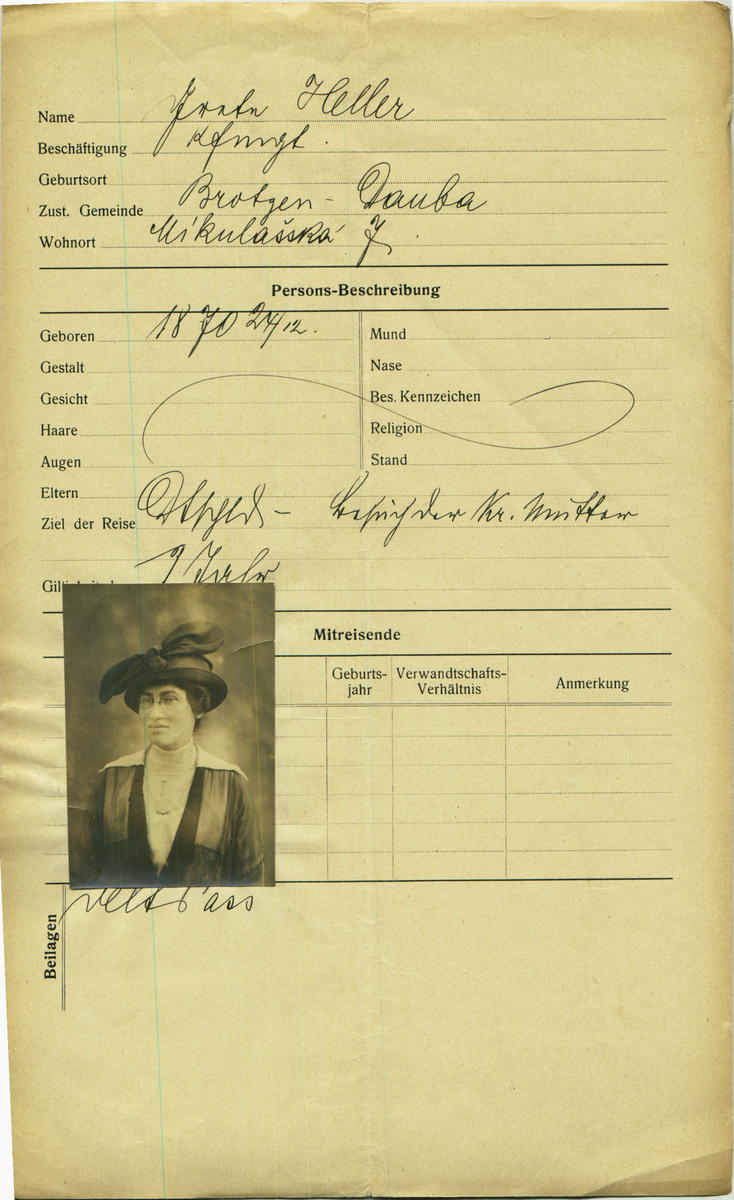 Name Grete Heller
Beschäftigung
Geburtsort
Zust. Gemeinde Brotzen - Dauba
Wohnort Mikulášská 7
Persons-Beschreibung
Geboren 1870 24/12.
Mund
Gestalt
Nase
Gesicht
Bes. Kennzeichen
Haare
Religion
Augen
Stand
Eltern
Ziel der Reise Dtschld - Besuch der kr. Mutter
1 Jahr
Mitreisende
Geburts-
jahr
Verwandtschafts-
Verhältnis
Anmerkung
Beilagen